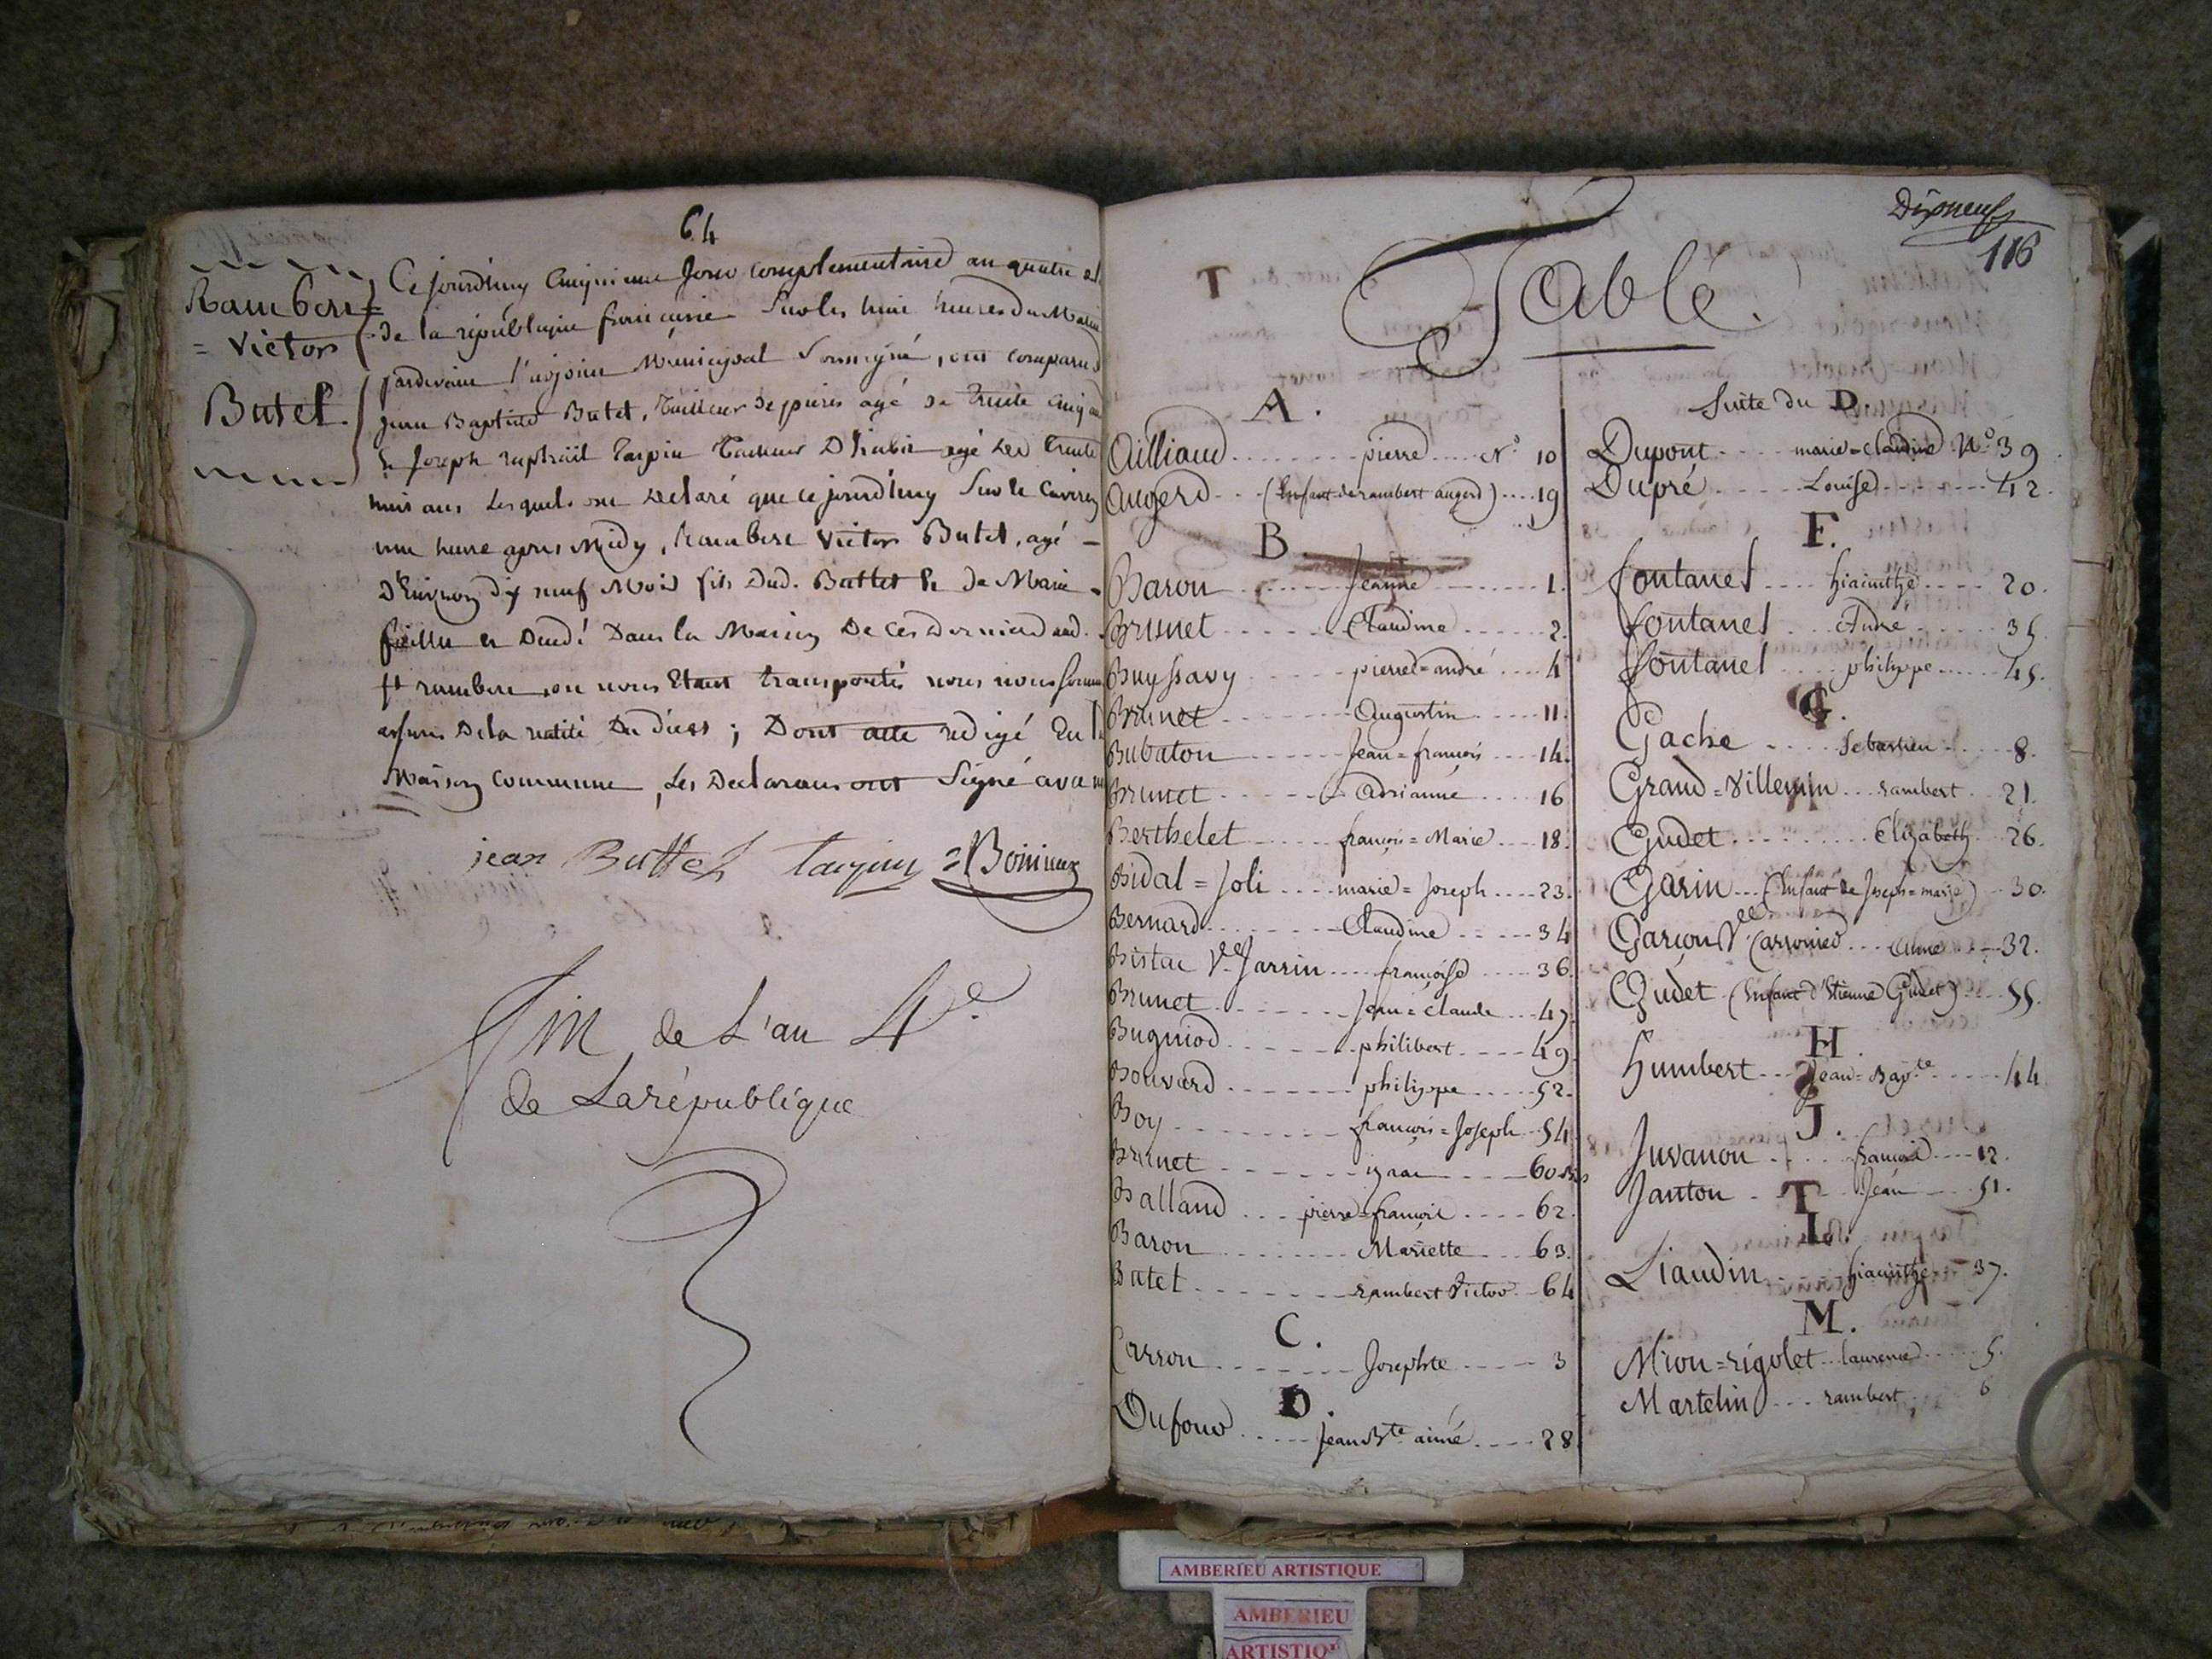 64
Rambert =
= Victor
Butet.
Ce jourdhuy Cinquieme Jour complementaire an quatre
de la république francaise Sur les huit heures du Matin
pardevant l'adjoint Municipal Soussigné, ont comparus
jean Baptiste Butet, tailleur de pierres agé de trente Cinq ans
& Joseph raphaël Tarpin Tailleur D'habit agé de trente
huit ans Lesquels ont Declaré que ce jourdhuy Sur le
une heure apres Midy, Rambert Victor Butet, agé –
D'Environ dix neuf Mois fils Dud. Buttet & de Marie
en Dans la Maison De ce Dernier aud.
St rambert, ou nous Etant transportés nous nous sommes
assurés De la realité Du décès ; Dont acte redigé En la
Maison Commune, Les Declarans ont Signé avec
jean Buttet tarpin =Bonieux
Fin de L'an 4e
de La république
Dixneuf
116
T
Table.
A.
Ailliaud ........ pierre .... No 10
Augerd ... (Enfant de rambert augerd) .... 19
B.
Baron ........ Jeanne ........ 1.
Brunet ...... Claudine ...... 2.
Buyssavy ...... pierre=andré .... 4
Brunet ........ Augustin ..... 11.
Bubaton ...... Jean=francois .... 14.
Brunet ....... Adrianne .... 16
Berthelet ..... francois=Marie ... 18.
Bidal=Joli .... marie=Joseph .... 23.
Bernard ........ Claudine ..... 34
Bistac Vee Jarrin .... francoise ..... 36.
Brunet ....... Jean=claude ... 47.
Bugniod ...... philibert .... 49.
Bouvard ...... philippe .... 52.
Boy ........ francois=Joseph .. 54.
Brunet ....... ignace .... 60 Bis
Balland ... pierre=francois .... 62.
Baron ........ Mariette ... 63.
Butet ....... rambert Victor .. 64
C.
Carron ....... Josephte ..... 3
D.
Dufour ..... Jean Bte aimé .... 28
Suite du D.
Dupont .... marie=claudine No 39
Dupré ..... Louise ....... 42.
F.
fontanel .... hiacinthe .... 20.
fontanel ... André ..... 35.
fontanel .... philippe ..... 45.
G.
Gache .... Sebastien .... 8.
Grand=Villemin ... rambert . 21.
Gudet ........ Elizabeth . 26.
Garin ... (Enfant de Joseph=marie) .. 30.
Garçon Vee Carronier ... Anne .... 32.
Gudet (Enfant d'Etienne Gudet) .... 55.
H.
humbert ... Jean=Bapte ..... 44
J.
Juvanon ..... francois .... 12.
Janton .... Jean .... 51.
L.
Liaudin ... hiacinthe ... 37.
M.
Mion=rigolet .. laurence ..... 5.
Martelin ... rambert ; 6
AMBERIEU ARTISTIQUE
AMBERIEU
ARTISTIQ